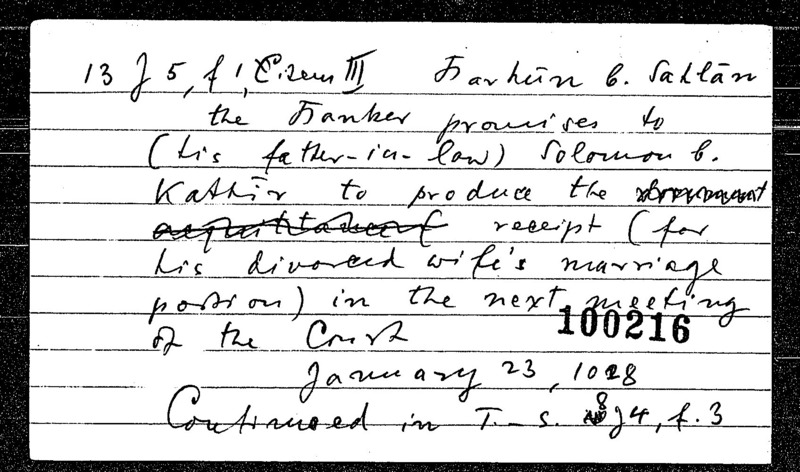 13 J 5, f 1, Item III Farhūn b. Sahlān
the Banker promises to
(his father-in-law) Solomon b.
Kathīr to produce the
receipt (for
his divorced wife's marriage
portion) in the next meeting
of the Court
100216
January 23, 1028
Continued in T.-S. 8 J4, f. 3